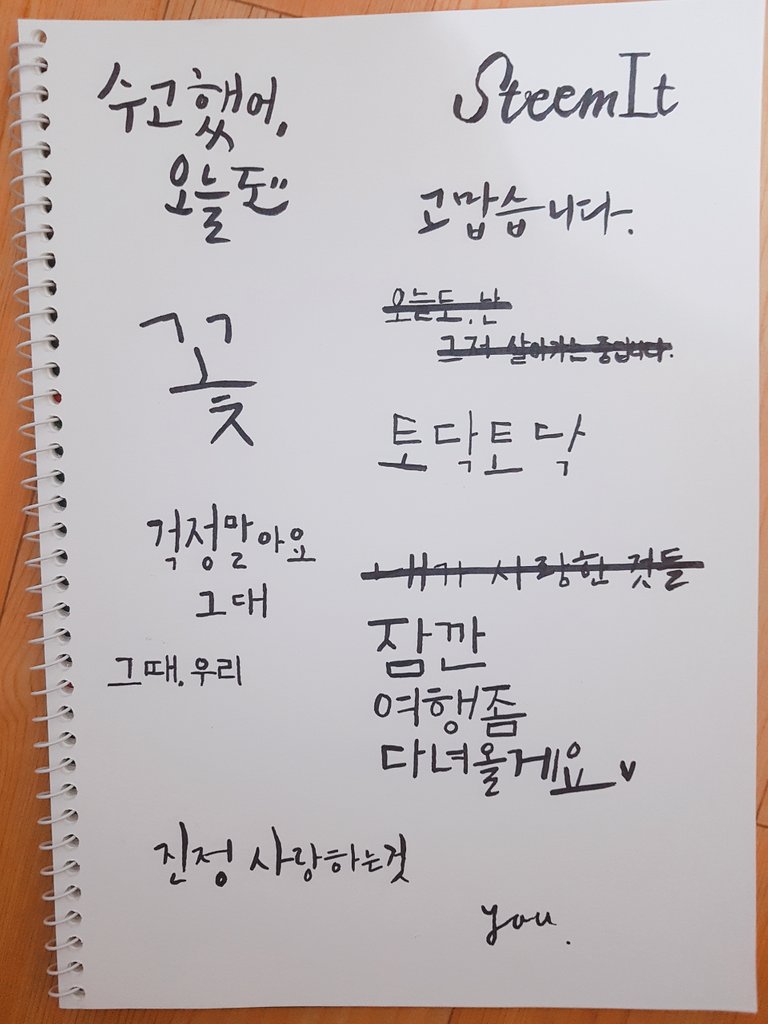 수고했어,
오늘도
SteemIt
고맙습니다.
오늘도, 난
그저 살아가는 중입니다.
꽃
토닥토닥
걱정말아요
그대
그때, 우리
내가 사랑한 것들
잠깐
여행좀
다녀올게요
진정 사랑하는것
you.